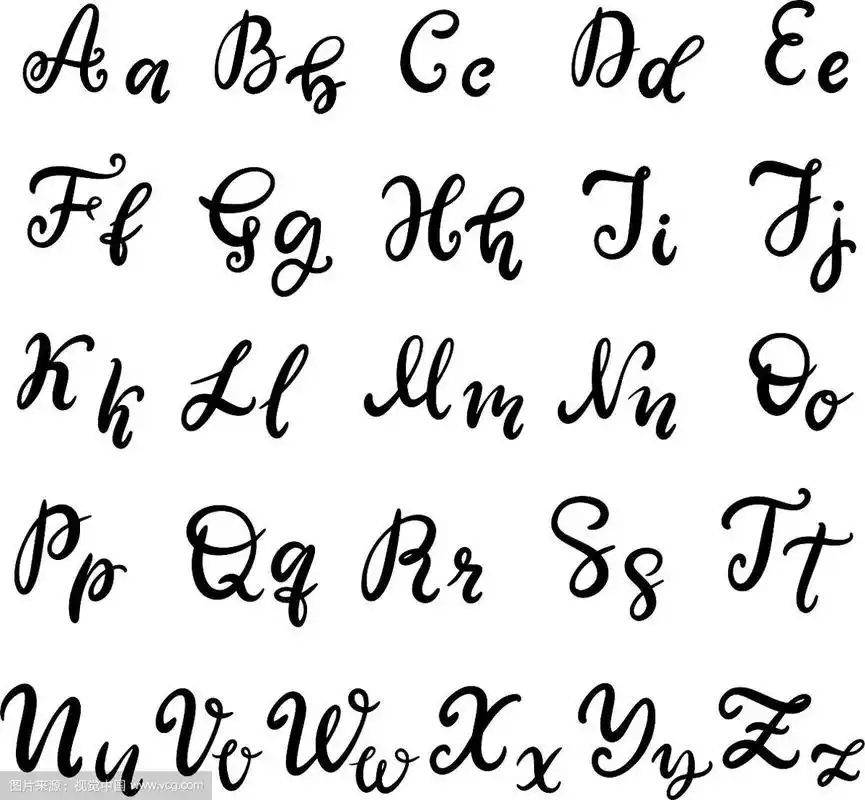 Aa Bb Cc Dd Ee
Ff Gg Hh Ii Jj
Kk Ll Mm Nn Oo
Pp Qq Rr Ss Tt
Uu Vv Ww Xx Yy Zz
图片来源：视觉中国 www.vcg.com